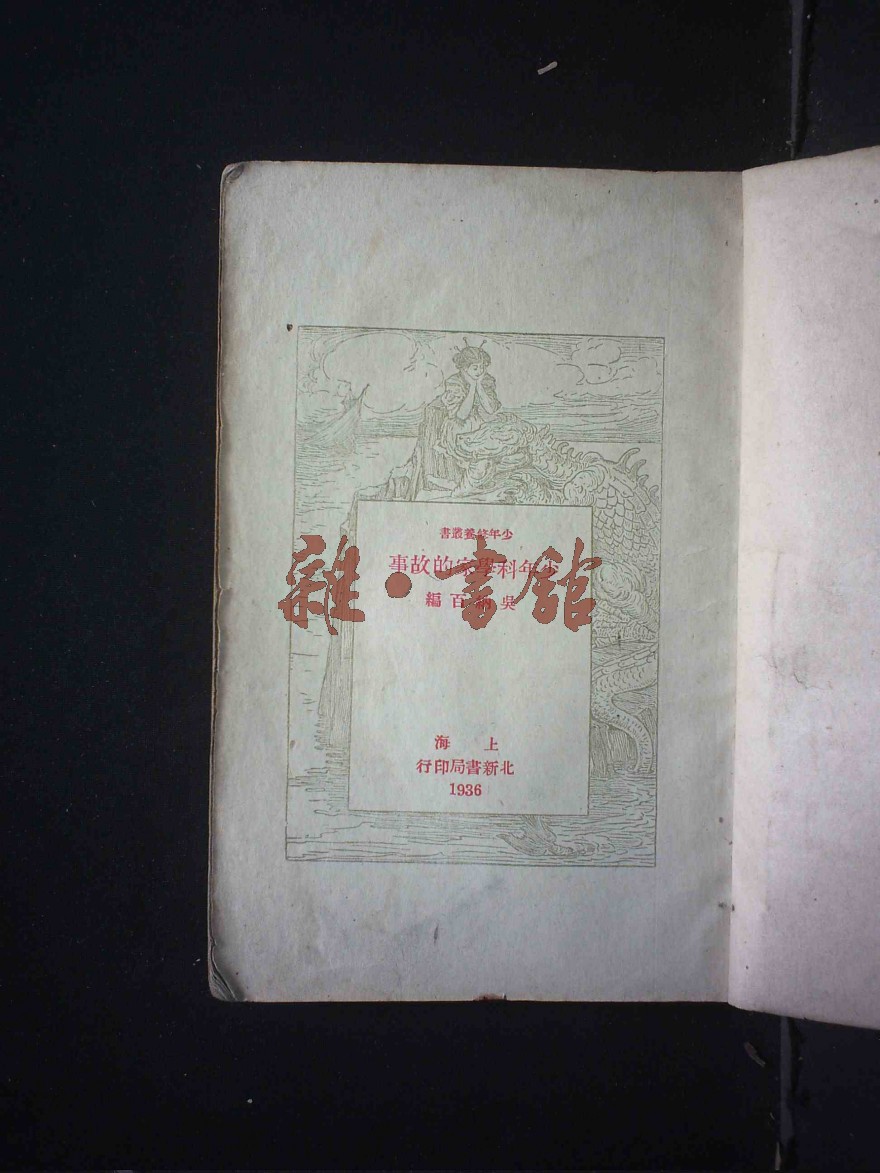 少年修養叢書
少年科學家的故事
吳百編
雜·書館
上海
北新書局印行
1936